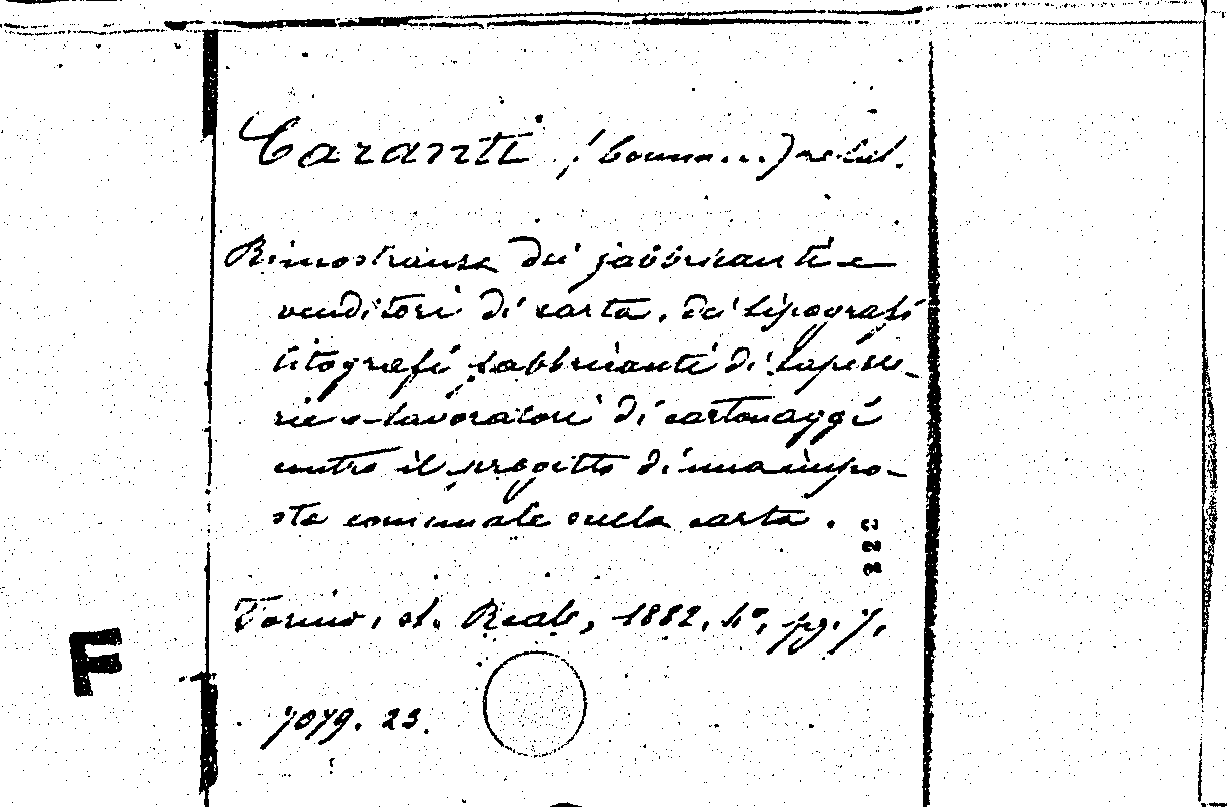 Caranti (Comm...) relat.
Rimostranze dei fabbricanti e
venditori di carta, dei tipografi
litografi fabbricanti di tapezze-
rie e lavoratori di cartonaggi
contro il progetto di una impo-
sta comunale sulla carta.
Torino, st. Reale, 1882, 4°, pg. 7.
7079. 23.
F